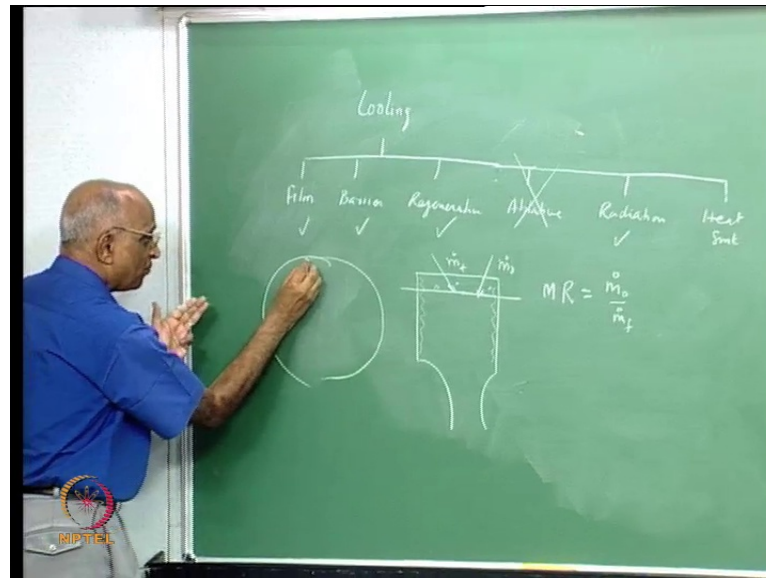 Cooling
Film Barrier Regenerative Ablative Radiation Heat Sink
ṁf ṁo MR = ṁo / ṁf
NPTEL